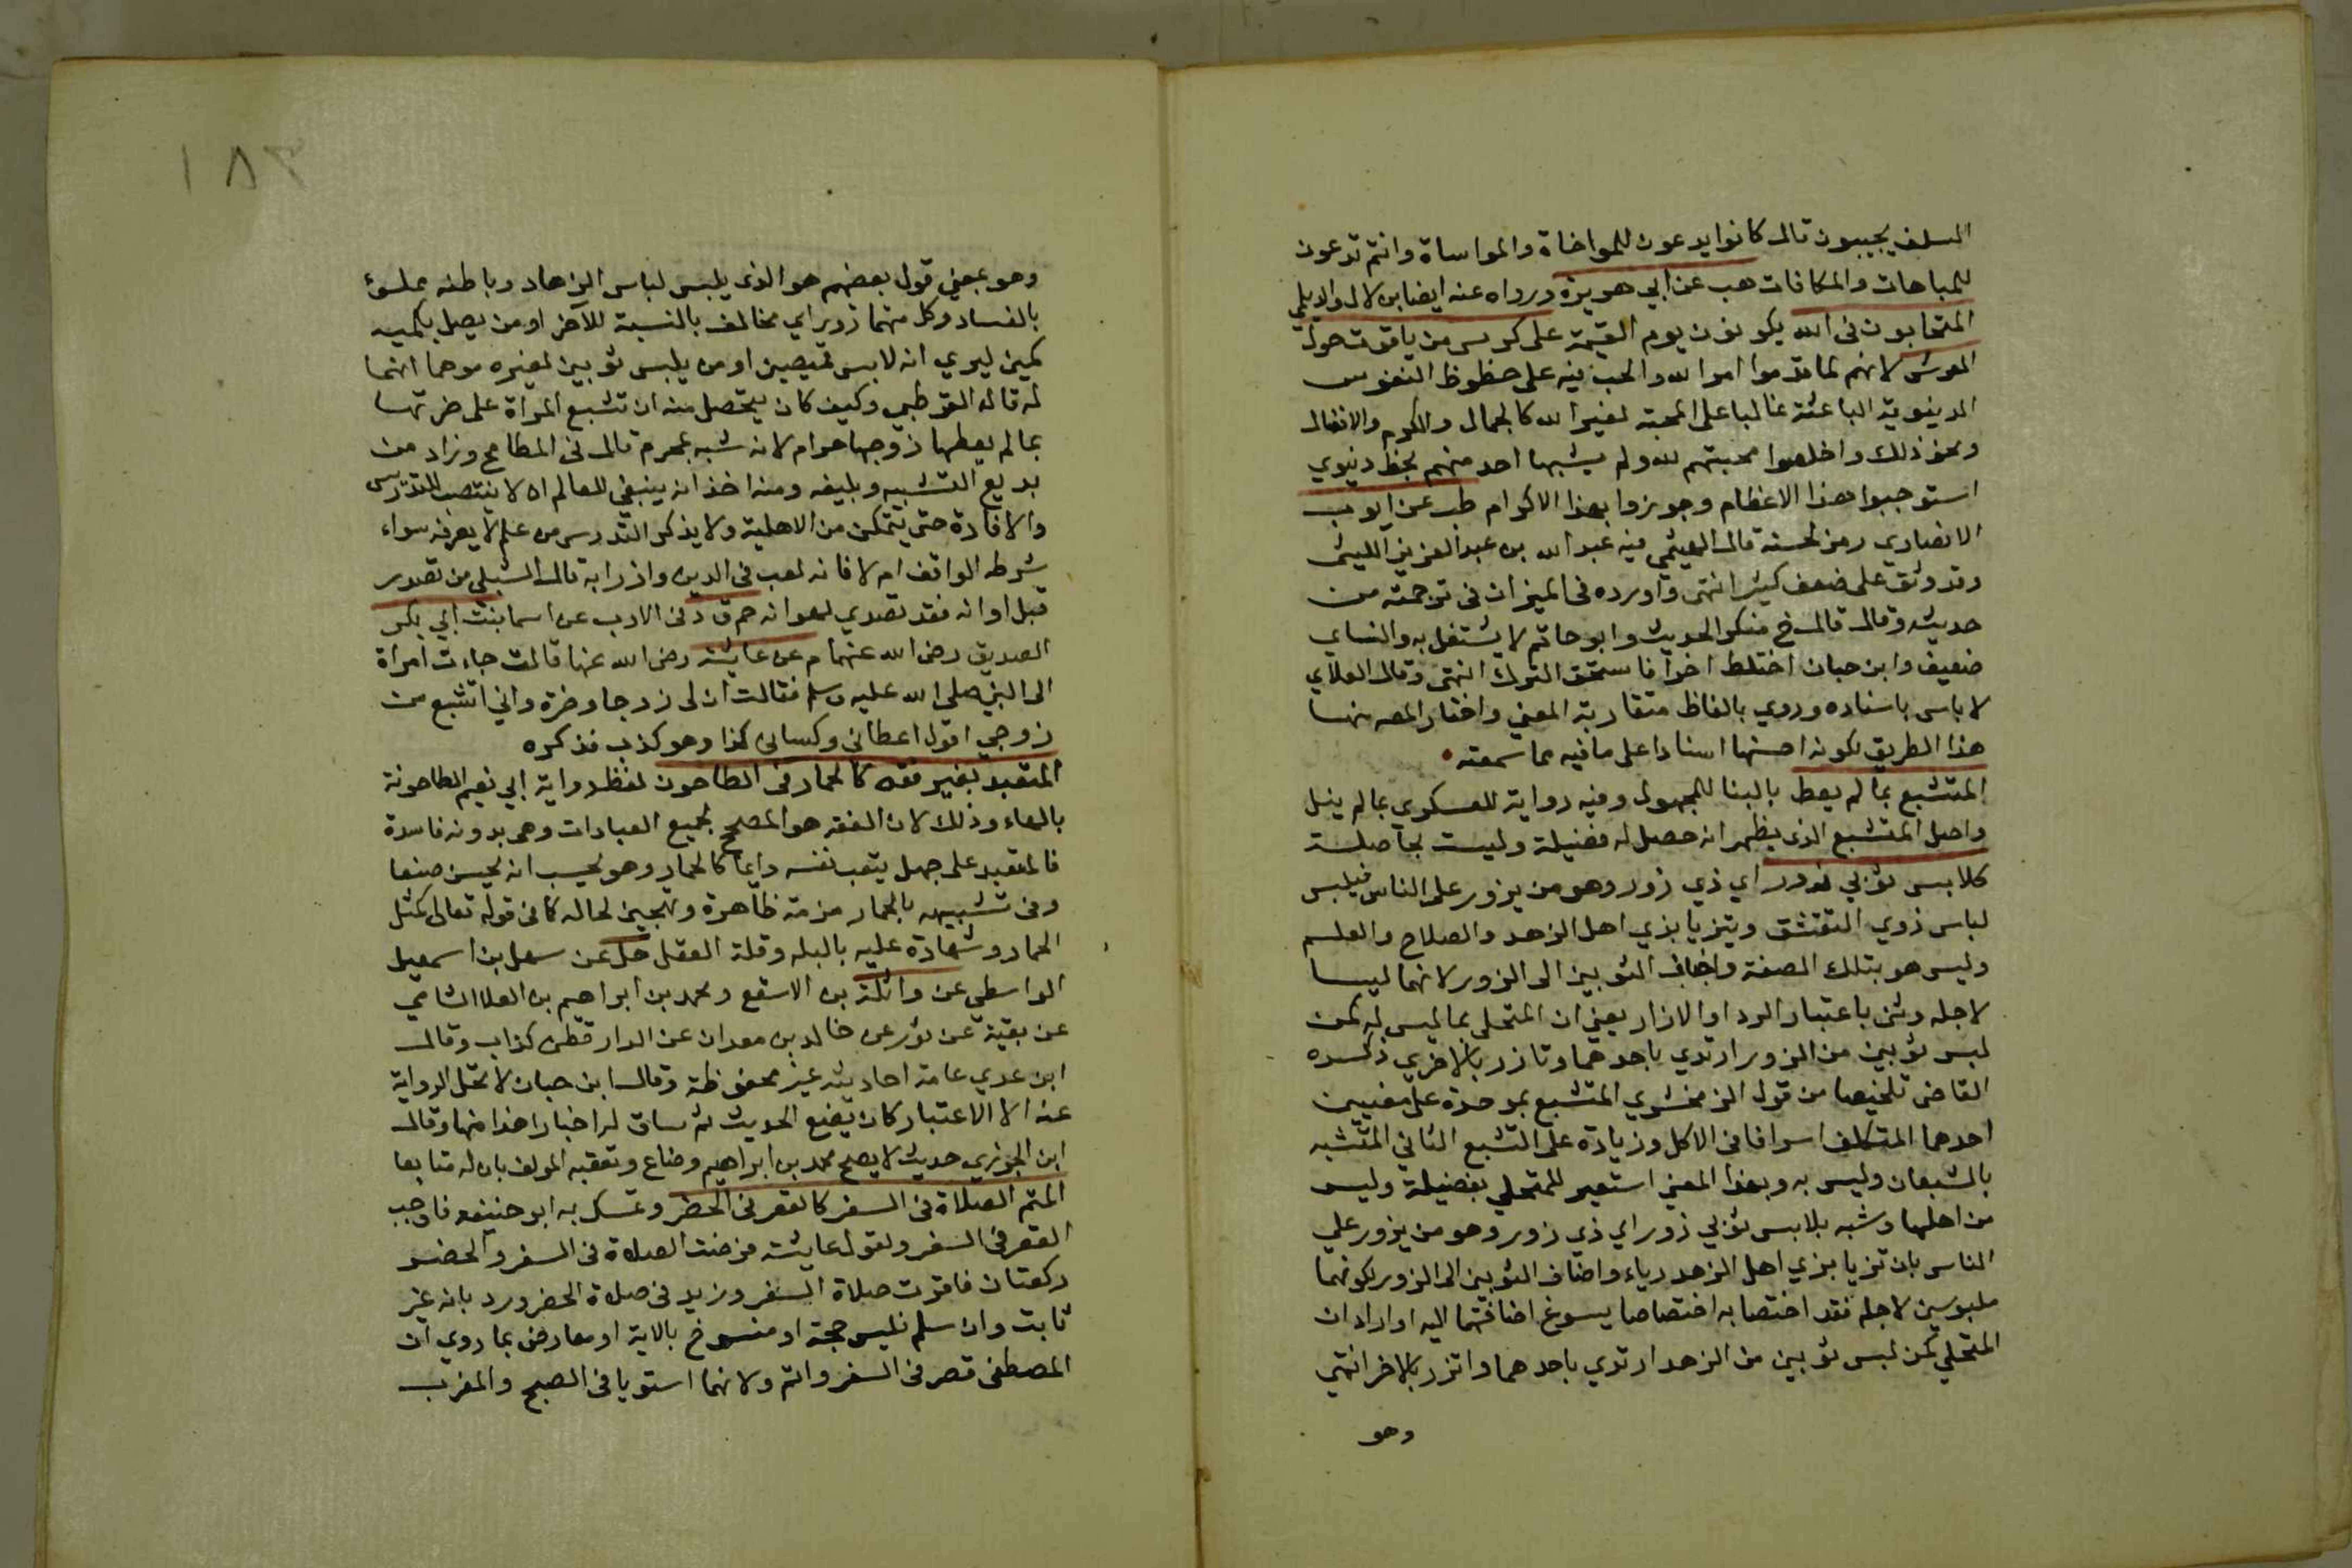 السلف يجيبون قال كانوا يدعون للمواخاة والمواساة وانتم تدعون
للمباهات والمكافات هب عن ابي هريرة ورواه عنه ايضا ابن لال والديلمي
المتحابون في الله يكونون يوم القيمة على كرسي من ياقوت حول
العرش لانهم لما قدموا امر الله والحب فيه على حظوظ النفوس
الدينوية الباعثة غالبا على المحبة لغير الله كالجمال والكرم والافضال
ونحو ذلك واخلصوا محبتهم لله ولم يشبها احد منهم بحظ دنيوي
استوجبوا هذا الاعظام وجوزوا بهذا الاكرام طب عن ايوب
الانصاري رمز لحسنه قال الهيثمي فيه عبد الله بن عبد العزيز الليثي
وقد وثق على ضعف كثير انتهى واورده في الميزان في ترجمته من
حديثه وقال قال خ منكر الحديث وابو حاتم لا يشتغل به والنساي
ضعيف وابن حبان اختلط اخرا فاستحق الترك انتهى وقال العلاي
لا باس باسناده وروي بالفاظ متقاربة المعني واختار المصـ منها
هذا الطريق لكونه احسنها اسنادا على ما فيه مما سمعته
المتشبع بما لم يعط بالبنا للمجهول وفيه رواية للعسكري بما لم ينل
واصل المتشبع الذي يظهر انه حصل له فضيلة وليست بحاصلة
كلابس ثوبي زور اي ذي زور وهو من يزور على الناس فيلبس
لباس ذوي التقشف ويتزيا بزي اهل الزهد والصلاح والعلم
وليس هو بتلك الصفة واضاف الثوبين الى الزور لانهما لبسا
لاجله وثني باعتبار الردا والازار يعني ان المتحلي بما ليس له كمن
لبس ثوبين من الزور ارتدي باحدهما وتازر بالاخري ذكره
القاضي تلخيصا من قول الزمخشري المتشبع بموحدة على معنيين
احدهما المتكلف اسرافا في الاكل وزيادة على الشبع الثاني المتشبه
بالشبعان وليس به وبهذا المعني استعير للمتحلي بفضيلة وليس
من اهلها وشبه بلابس ثوبي زور اي ذي زور وهو من يزور علي
الناس بان تزيا بزي اهل الزهد رياء واضاف الثوبين الى الزور لكونهما
ملبوسين لاجله فقد اختصا به اختصاصا يسوغ اضافتهما اليه او اراد ان
المتحلي كمن لبس ثوبين من الزهد ارتدي باحدهما واتزر بالاخر انتهي
وهو
١٨٣
وهو بمعني قول بعضهم هو الذي يلبس لباس الزهاد وباطنه مملوء
بالفساد وكل منهما زور اي مخالف بالنسبة للآخر او من يصل بكميه
كمين ليري انه لابس قميصين او من يلبس ثوبين لغيره موهما انهما
له قاله القرطبي وكيف كان يتحصل منه ان تشبع المراة على ضرتها
بما لم يعطها زوجها حرام لانه شبه بمحرم قال في المطامح وزاد من
بديع التشبيه وبليغه ومنه اخذ انه ينبغي للعالم ان لا ينتصب للتدريس
والافادة حتى يتمكن من الاهلية ولا يذكر الدرس من علم لا يعرفه سواء
شرطه الواقف ام لا فانه لعب في الدين وازرا به قال الشبلي من تصدر
قبل اوانه فقد تصدي لهوانه حم ق د في الادب عن اسما بنت ابي بكر
الصديق رضي الله عنهما م عن عايشة رضي الله عنها قالت جاءت امراة
الى النبي صلى الله عليه وسلم فقالت ان لي زوجا وضرة واني اتشبع من
زوجي اقول اعطاني وكساني كذا وهو كذب فذكره
المتعبد بغير فقه كالحمار في الطاحون لفظ رواية ابي نعيم الطاحونة
بالهاء وذلك لان الفقه هو المصحح لجميع العبادات وهي بدونه فاسدة
فالمتعبد على جهل يتعب نفسه دايما كالحمار وهو يحسب انه يحسن صنعا
وفي تشبيهه بالحمار مذمة ظاهرة وتهجين لحاله كما في قوله تعالى كمثل
الحمار وشهادة عليه بالبله وقلة العقل حل عن سهل بن اسمعيل
الواسطي عن واثلة بن الاسقع ومحمد بن ابراهيم بن العلا الشامي
عن بقية عن ثور عن خالد بن معدان عن الدارقطني كذاب وقال
ابن عدي عامة احاديثه غير محفوظة وقال ابن حبان لا تحل الرواية
عنه الا الاعتبار كان يضع الحديث ثم ساق له اخبارا هذا منها وقال
ابن الجوزي حديث لا يصح محمد بن ابراهيم وضاع وتعقبه المولف بان له متابعا
المتم الصلاة في السفر كالقصر في الحضر وتمسك به ابو حنيفه فاوجب
القصر في السفر ولقول عايشه فرضت الصلاة في السفر والحضر
ركعتان فاقرت صلاة السفر وزيد في صلاة الحضر ورد بانه غير
ثابت وان سلم فليس حجة او منسوخ بالاية او معارض بما روي ان
المصطفى قصر في السفر واتم ولانهما استويا في الصبح والمغرب